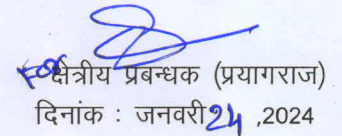 For क्षेत्रीय प्रबन्धक (प्रयागराज)
दिनांक : जनवरी 24 ,2024